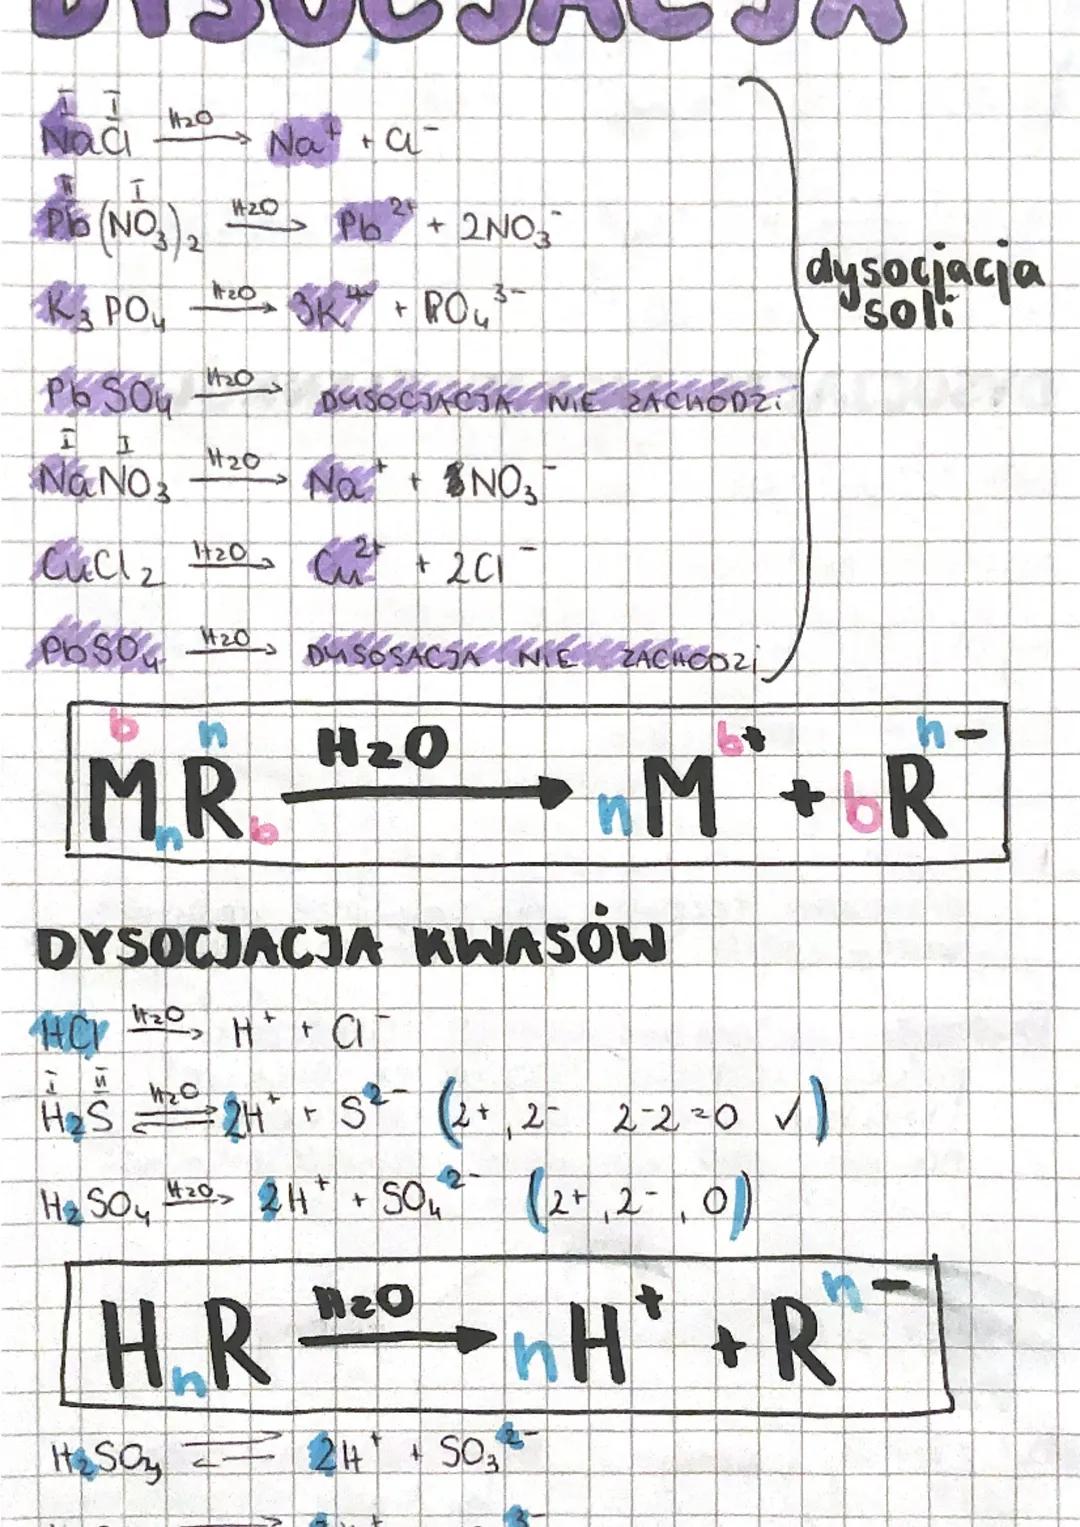 DYSOCJACJA
I I
NaCl H2O → Na⁺ + Cl⁻
II I
Pb(NO₃)₂ H2O → Pb²⁺ + 2NO₃⁻
K₃PO₄ H2O → 3K⁺ + PO₄³⁻
PbSO₄ H2O → DYSOCJACJA NIE ZACHODZi
I I
NaNO₃ H2O → Na⁺ + NO₃⁻
CuCl₂ H2O → Cu²⁺ + 2Cl⁻
PbSO₄ H2O → DYSOSACJA NIE ZACHODZi
dysocjacja
soli
b n
MₙR_b H2O → nM^b+ + bRⁿ⁻
DYSOCJACJA KWASÓW
HCl H2O → H⁺ + Cl⁻
I II
H₂S H2O ⇌ 2H⁺ + S²⁻ (2+, 2- 2-2=0 ✓)
H₂SO₄ H2O → 2H⁺ + SO₄²⁻ (2+, 2-, 0)
HₙR H2O → nH⁺ + Rⁿ⁻
H₂SO₃ ⇌ 2H⁺ + SO₃²⁻